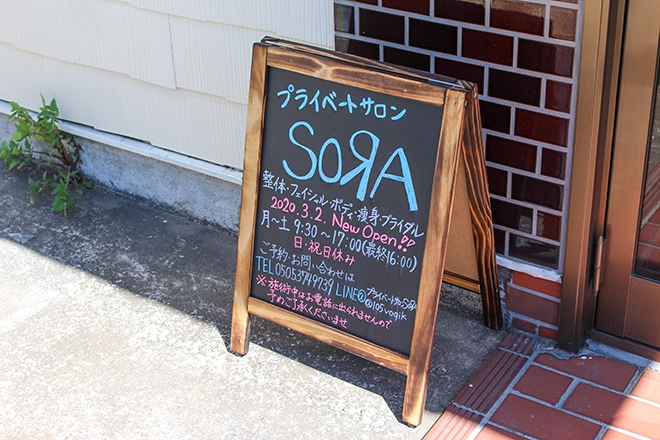 プライベートサロン
SoЯA
整体・フェイシャル・ボディ・痩身・ブライダル
2020.3.2. New Open!!
月〜土 9:30〜17:00(最終16:00)
日・祝日休み
ご予約・お問い合わせは
TEL 05053749739 LINE@ プライベートサロンSoЯA @105vogik
※施術中はお電話に出られませんので
予めご了承くださいませ